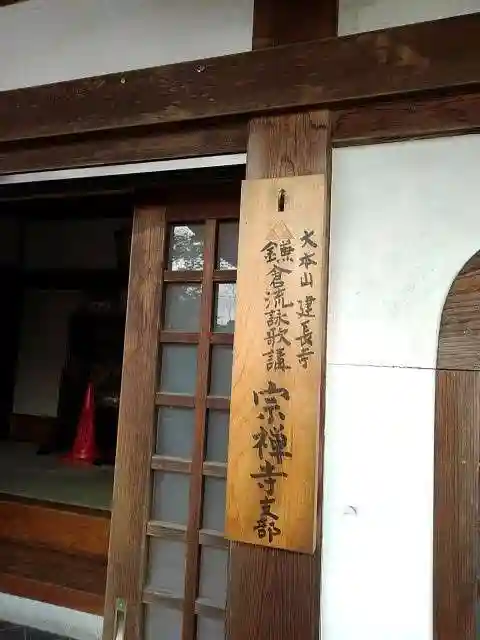 大本山 建長寺
鎌倉流詠歌講
宗禅寺支部